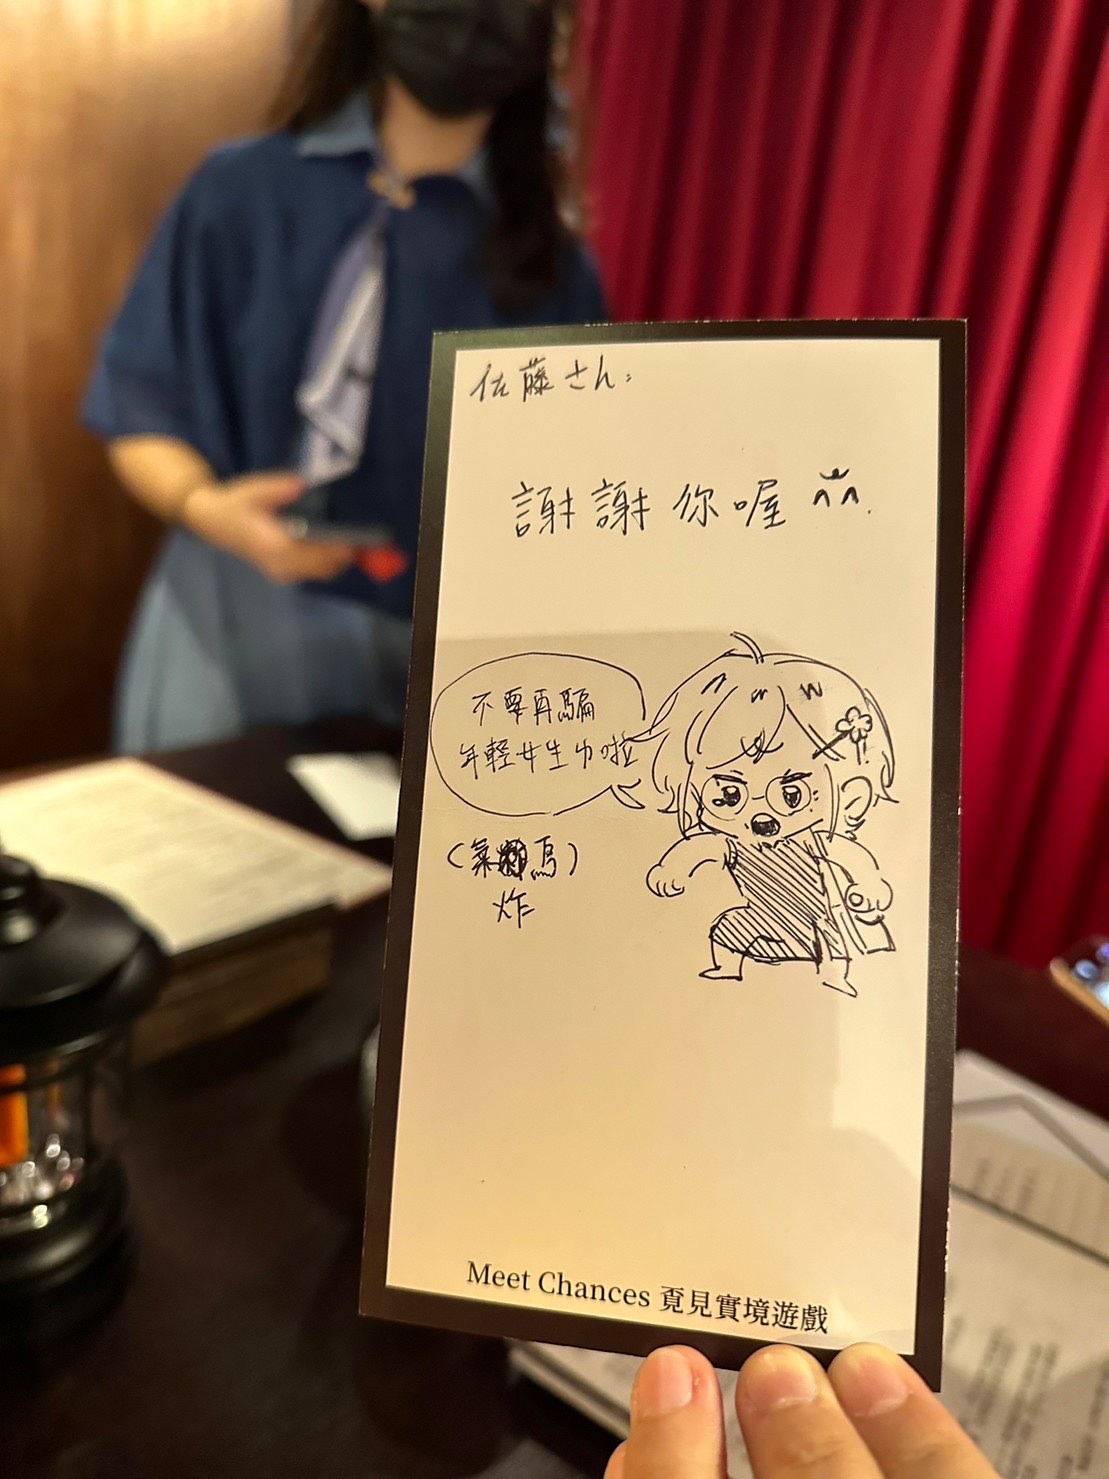 佐藤さん：
謝謝你喔
不要再騙
年輕女生ㄌ啦
（氣 焉）
炸
Meet Chances 覓見實境遊戲